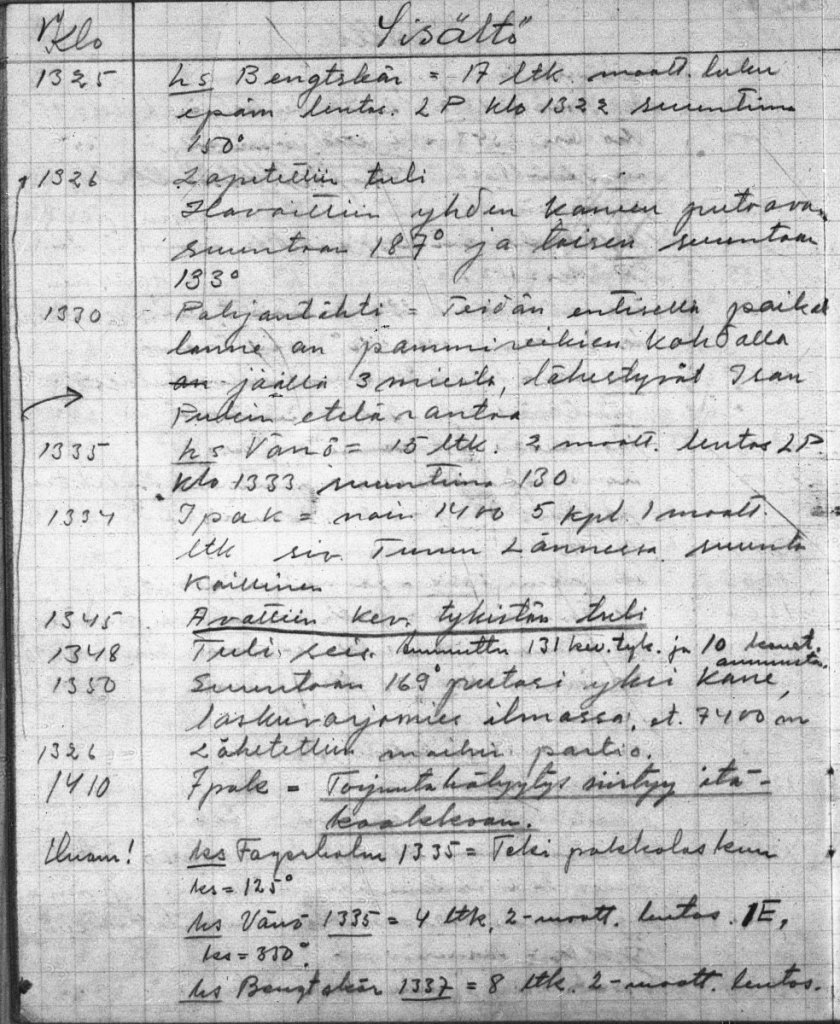 Klo Sisältö
1325 hs Bengtskär = 17 ltk. moott. luku
epäm lentos. LP klo 1322 suuntima
150°
1326 Lopetettiin tuli
Havaittiin yhden koneen putoavan
suuntaan 187° ja toisen suuntaan
133°
1330 Pohjantähti = Teidän entisellä paikal
lanne on pommireikien kohdalla
on jäällä 3 miestä, lähestyvät Ison
etelä rantaa
1335 hs Vänö = 15 ltk. 2 moott. lentos LP
klo 1333 suuntima 130
1334 Ipak = noin 1400 5 kpl. 1 moott.
ltk siv. Turun Lännessä suunta
Koillinen
1345 Avattiin kev. tykistön tuli
1348 Tuli seis. ammuttu 131 kev.tyk. ja 10 konet.
ammusta.
1350 Suuntaan 169° putosi yksi kone,
laskuvarjomies ilmassa, et. 7400 m
1326 Lähetettiin maihin partio.
1410 Ipak = Torjuntahälyytys siirtyy itä-
kaakkoon.
Huom! hs Fagerholm 1335 = Teki pakkolaskun
ks = 125°
hs Vänö 1335 = 4 ltk, 2-moott. lentos. 1E,
ks = 350°.
hs Bengtskär 1337 = 8 ltk. 2-moott. lentos.